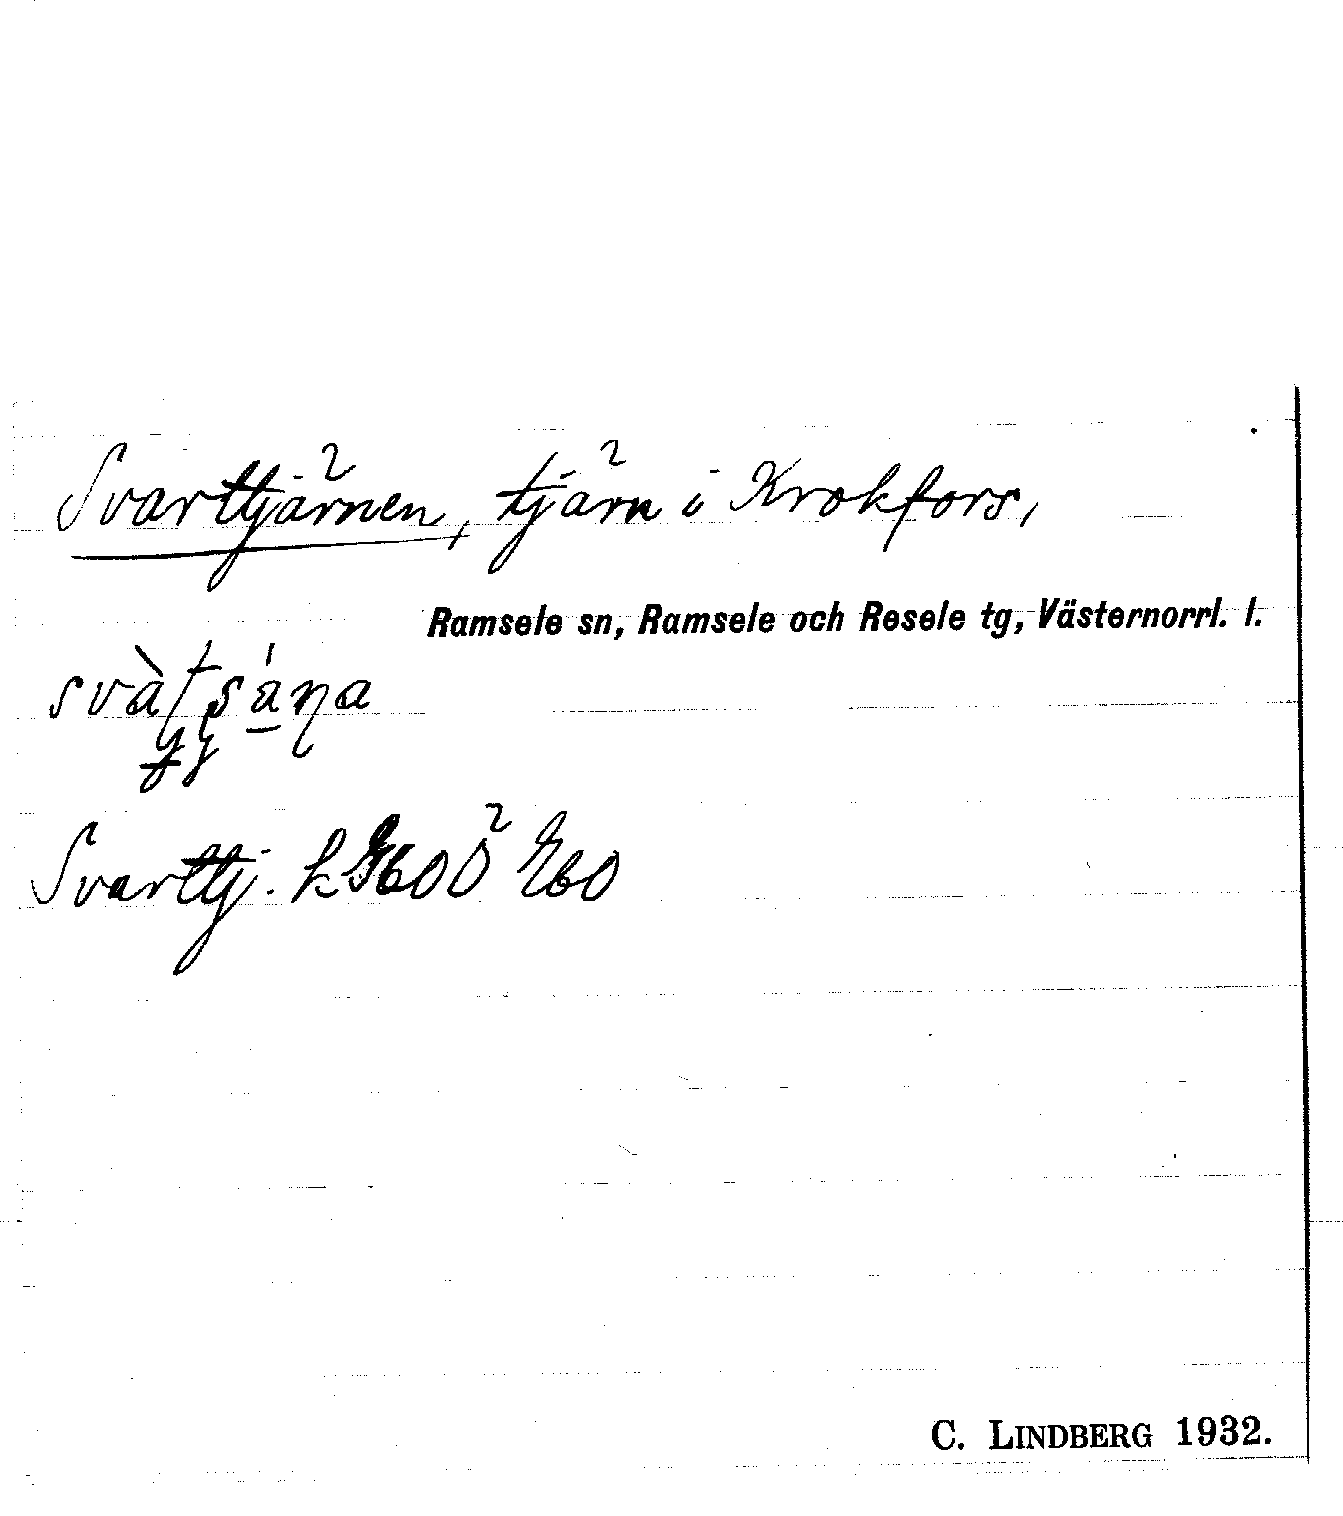 Svarttjärnen, tjärn i Krokfors,
Ramsele sn, Ramsele och Resele tg, Västernorrl. l.
Svarttj.
C. LINDBERG 1932.